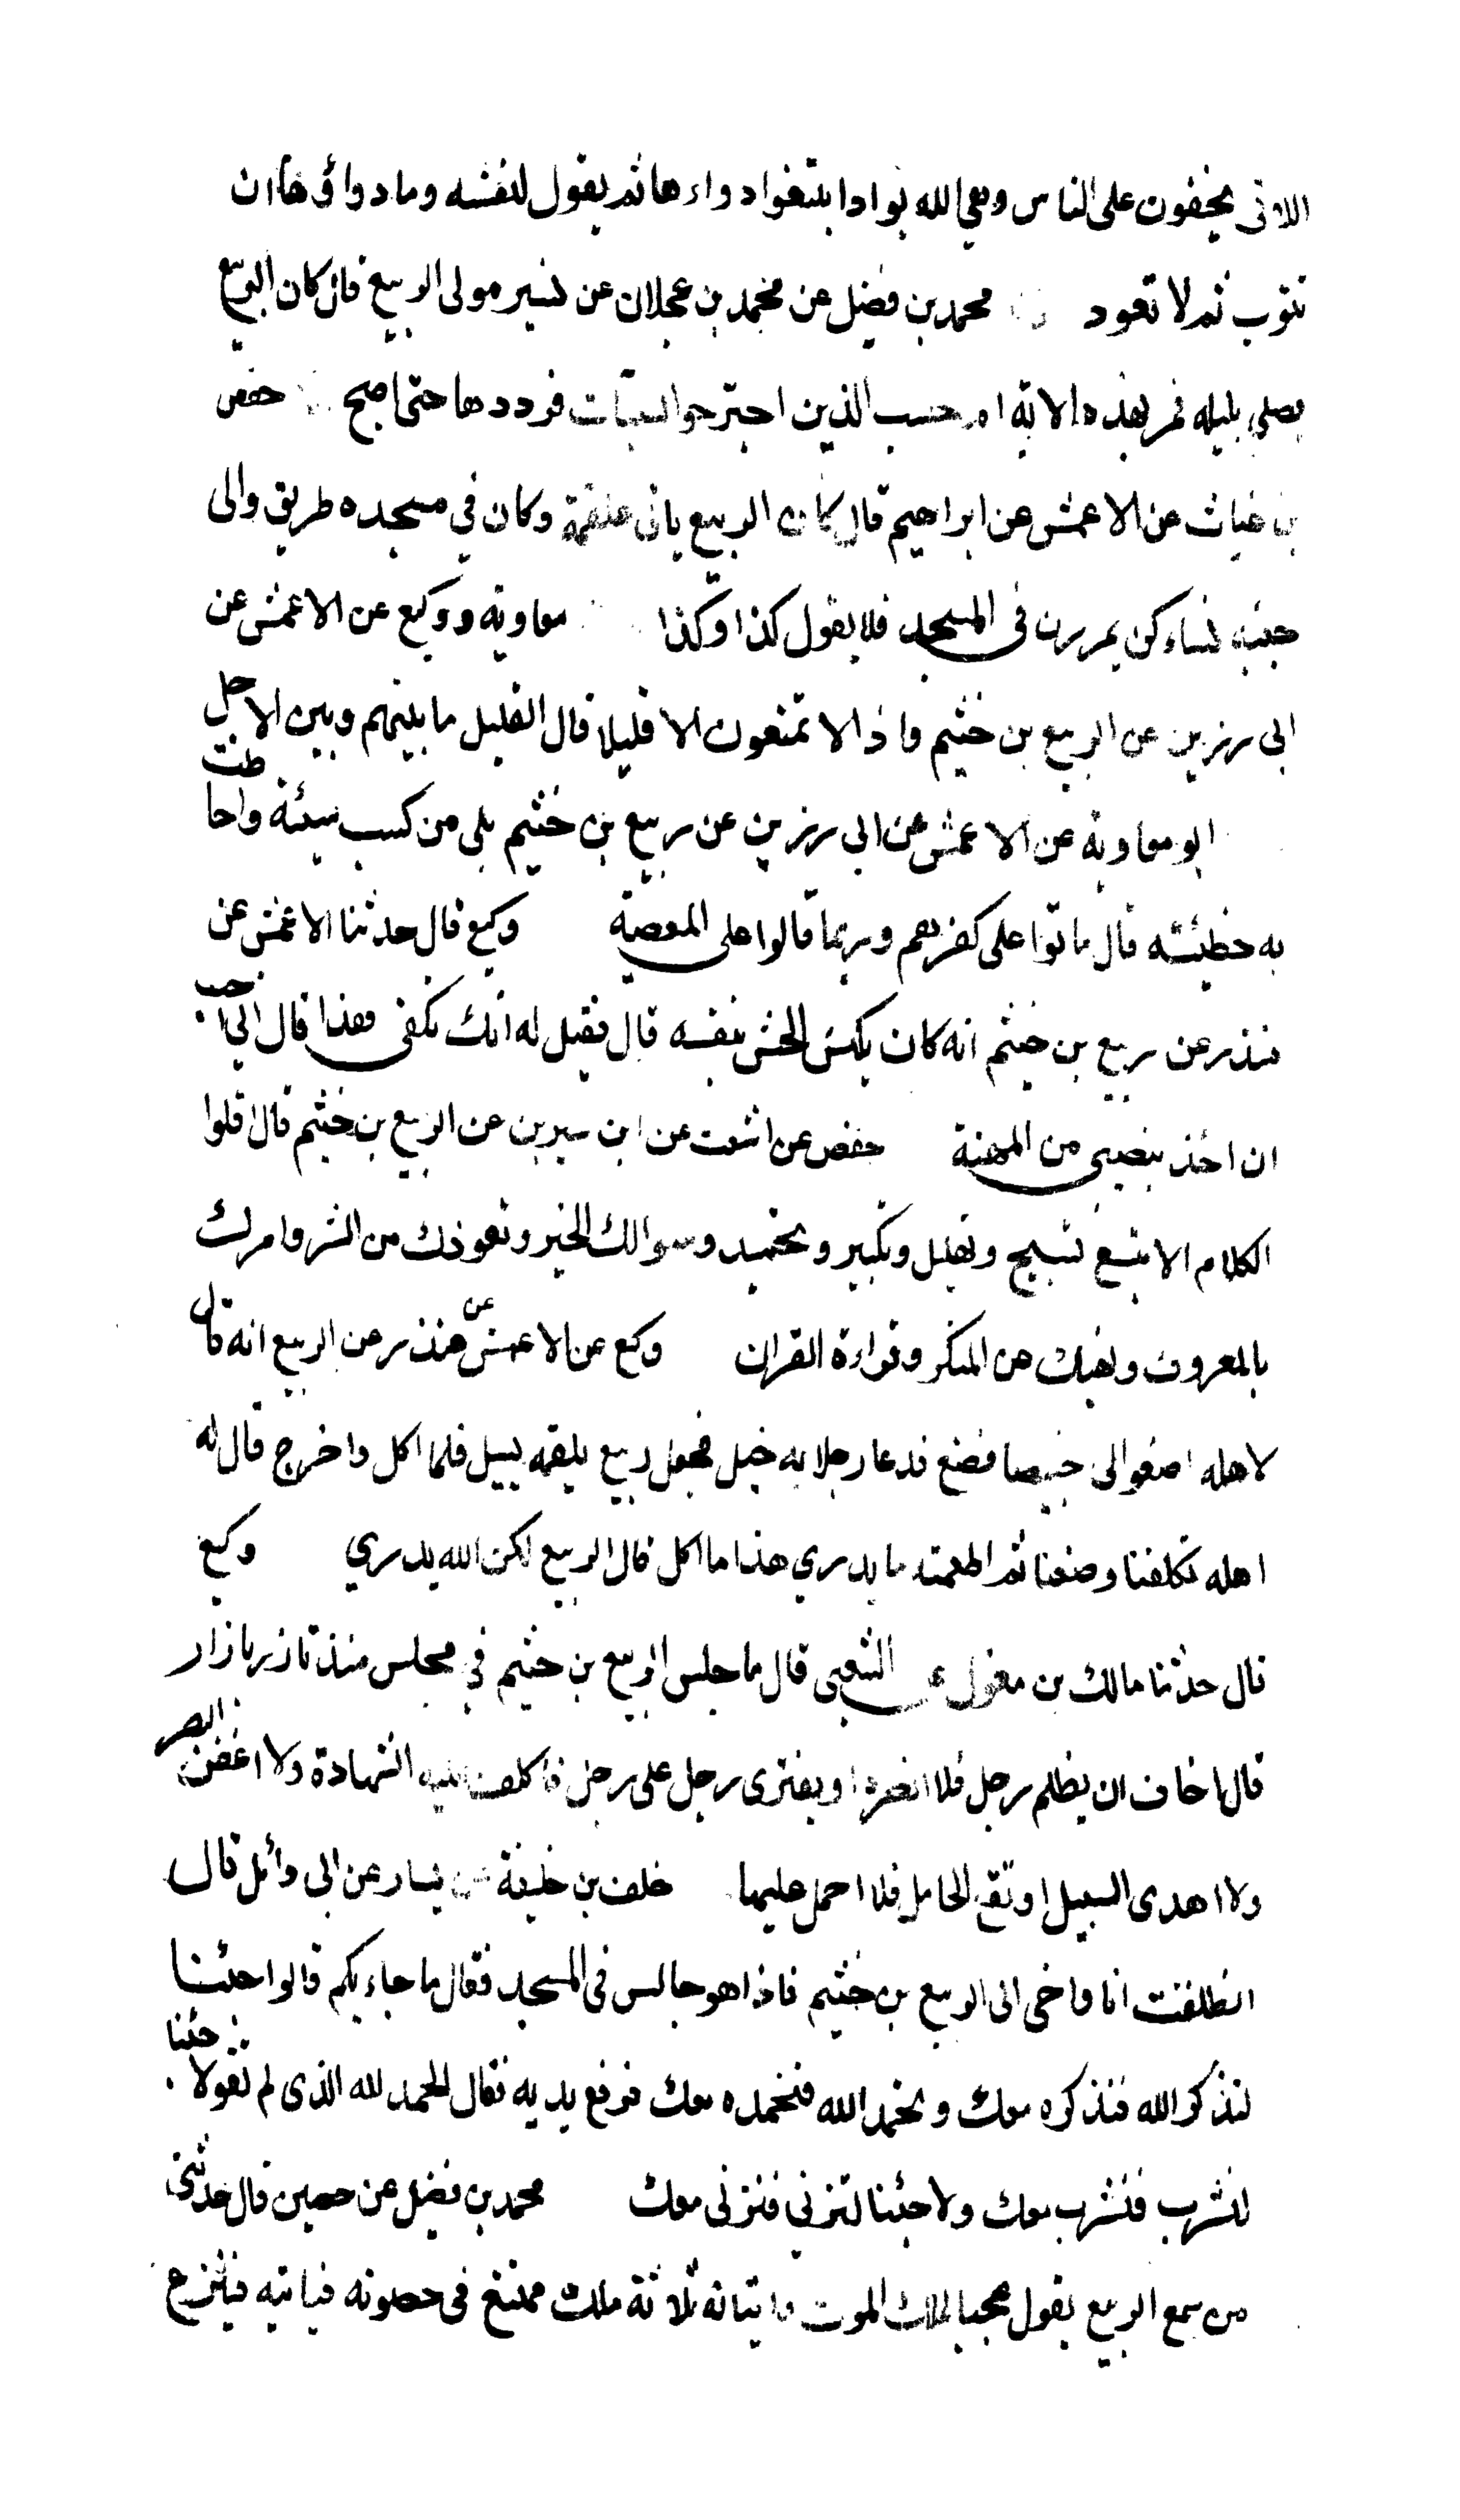 اللاتي يخفون على الناس وهي لله بوادا بلتغوا دواءها ثم يقول لنفسه وما دواؤها ان
تتوب ثم لا تعود محمد بن فضيل عن محمد بن عجلان عن نسير مولى الربيع قال كان الربيع
يصلي بليله فمر بهذه الاية ام حسب الذين اجترحوا السيات فرددها حتى اصبح حفص
بن غياث عن الاعمش عن ابراهيم قال كان الربيع ياتي علقمة وكان في مسجده طريق والى
جنبه نساء كن يمررن في المسجد فلا يقول كذا وكذا معاوية ووكيع عن الاعمش عن
ابي رزين عن الربيع بن خثيم واذا لا تمتعون الا قليلا قال القليل ما بينهم وبين الاجل
ابو معاوية عن الاعمش عن ابي رزين عن ربيع بن خثيم بلى من كسب سيئة واحاطت
به خطيئته قال ماتوا على كفرهم وربما قالوا على المعصية وكيع قال حدثنا الاعمش عن
منذر عن ربيع بن خثيم انه كان يكنس الحش بنفسه قال فقيل له انك تكفى هذا قال اني احب
ان اخذ بنصيبي من المهنة حفص عن اشعث عن ابن سيرين عن الربيع بن خثيم قال اقلوا
الكلام الا بتسع تسبيح وتهليل وتكبير وتحميد وسوالك الخير وتعوذك من الشر وامرك
بالمعروف ونهيك عن المنكر وقراءة القران وكيع عن الاعمش عن منذر عن الربيع انه قال
لاهله اصنعوا لي خبيصا فصنع فدعا رجلا به خبل فجعل ربيع يلقمه يسيل فلما اكل واخرج قال له
اهله تكلفنا وصنعنا ثم اطعمته ما يدري هذا ما اكل قال الربيع لكن الله يدري وكيع
قال حدثنا مالك بن مغول عن الشعبي قال ما جلس الربيع بن خثيم في مجلس منذ تازر بازار
قال اخاف ان يظلم رجل فلا انصره او يفتري رجل على رجل فاكلف عليه الشهادة ولا اغض البصر
ولا اهدى السبيل او تقع الحامل فلا احمل عليها خلف بن خليفة عن يسار عن ابي وائل قال
انطلقت انا واخي الى الربيع بن خثيم فاذا هو جالس في المسجد فقال ما جاء بكم قالوا جئنا
لنذكر الله فنذكره معك ونحمد الله فنحمده معك فرفع يديه فقال الحمد لله الذي لم تقولا جئنا
لنشرب فنشرب معك ولا جئنا لتزني فنزني معك محمد بن فضيل عن حصين قال حدثني
من سمع الربيع يقول عجبا لملك الموت واتيانه ثلاثة ملك ممتنع في حصونه فياتيه فينزع